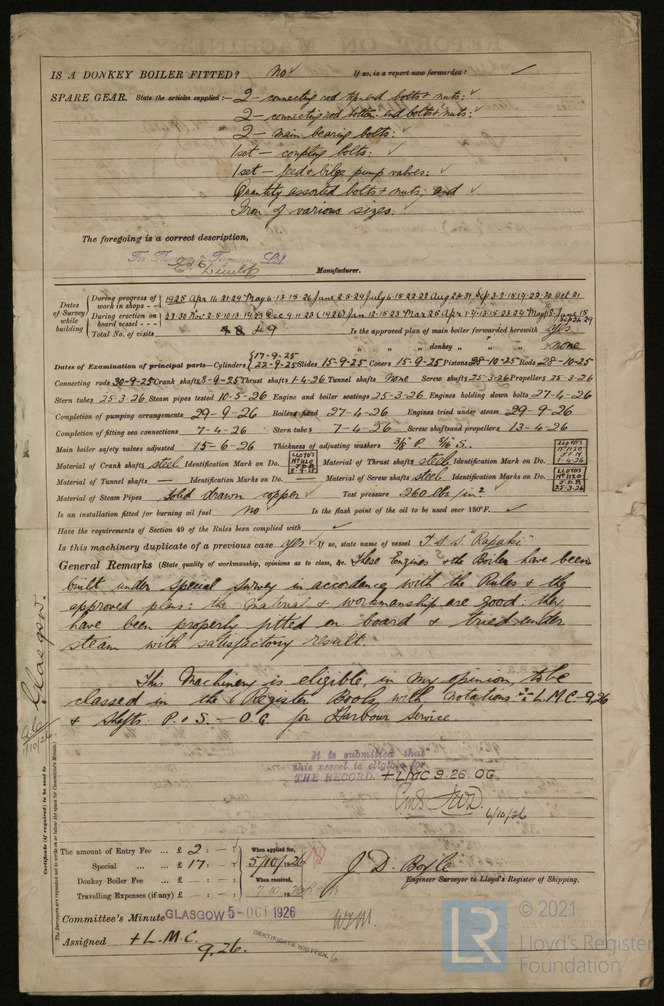 IS A DONKEY BOILER FITTED? No ✓ If so, is a report now forwarded? ✓
SPARE GEAR. State the articles supplied:— 2 - connecting rod top end bolts & nuts: ✓
2 - connecting rod bottom end bolts & nuts: ✓
2 - main bearing bolts: ✓
1 set - coupling bolts: ✓
1 set - feed & bilge pump valves: ✓
Quantity assorted bolts & nuts, and ✓
Iron of various sizes. ✓
The foregoing is a correct description,
Manufacturer.
Dates of Survey while building
During progress of work in shops - - 1925 Apr 16-21-29 May 6-13-15-26 June 2-5-29 July 6-15-22-28 Aug
During erection on board vessel - - -
Total No. of visits 49 Is the approved plan of main boiler forwarded herewith Yes
" " " donkey " " " none
Dates of Examination of principal parts—Cylinders 17-9-25 22-9-25 Slides 15-9-25 Covers 15-9-25 Pistons 28-10-25 Rods 28-10-25
Connecting rods 30-9-25 Crank shafts 8-9-25 Thrust shafts 1-4-26 Tunnel shafts None Screw shafts 25-3-26 Propellers 25-3-26
Stern tubes 25-3-26 Steam pipes tested 10-5-26 Engine and boiler seatings 25-3-26 Engines holding down bolts 27-4-26
Completion of pumping arrangements 29-9-26 Boilers fixed 27-4-26 Engines tried under steam 29-9-26
Completion of fitting sea connections 7-4-26 Stern tubes 7-4-26 Screw shafts and propellers 13-4-26
Main boiler safety valves adjusted 15-6-26 Thickness of adjusting washers 3/8 P 5/16 S.
Material of Crank shafts Steel Identification Mark on Do. Material of Thrust shafts Steel Identification Mark on Do. LLOYD'S No 1120 1-4-26
Material of Tunnel shafts — Identification Marks on Do. Material of Screw shafts Steel Identification Marks on Do. LLOYD'S No 1120 J.D.B. 25-3-26
Material of Steam Pipes Solid drawn copper ✓ Test pressure 260 lbs/in² ✓
Is an installation fitted for burning oil fuel No ✓ Is the flash point of the oil to be used over 150°F. ✓
Have the requirements of Section 49 of the Rules been complied with ✓
Is this machinery duplicate of a previous case Yes ✓ If so, state name of vessel T.S.S. "Rapaki"
General Remarks (State quality of workmanship, opinions as to class, &c. These Engines & the Boiler have been
built under special survey in accordance with the Rules & the
approved plan: the material & workmanship are good: they
have been properly fitted on board & tried under
steam with satisfactory result.
This Machinery is eligible, in my opinion, to be
classed in the Register Book, with notations:- + L.M.C-9,26
& Shafts P & S - O G for Harbour Service
It is submitted that
this vessel is eligible for
THE RECORD. + LMC 9.26. OG.
6/10/26
Glasgow.
Certificate (if required) to be sent to
The amount of Entry Fee ... £ 2 : — : When applied for,
Special ... £ 17 : — : 5/10/1926
Donkey Boiler Fee ... £ : : When received,
Travelling Expenses (if any) £ : : 7.10.1926
J. D. Boyle
Engineer Surveyor to Lloyd's Register of Shipping.
Committee's Minute GLASGOW 5-OCT 1926
Assigned + L.M.C. 9.26.
CERTIFICATE WRITTEN.
LR © 2021
Lloyd's Register
Foundation